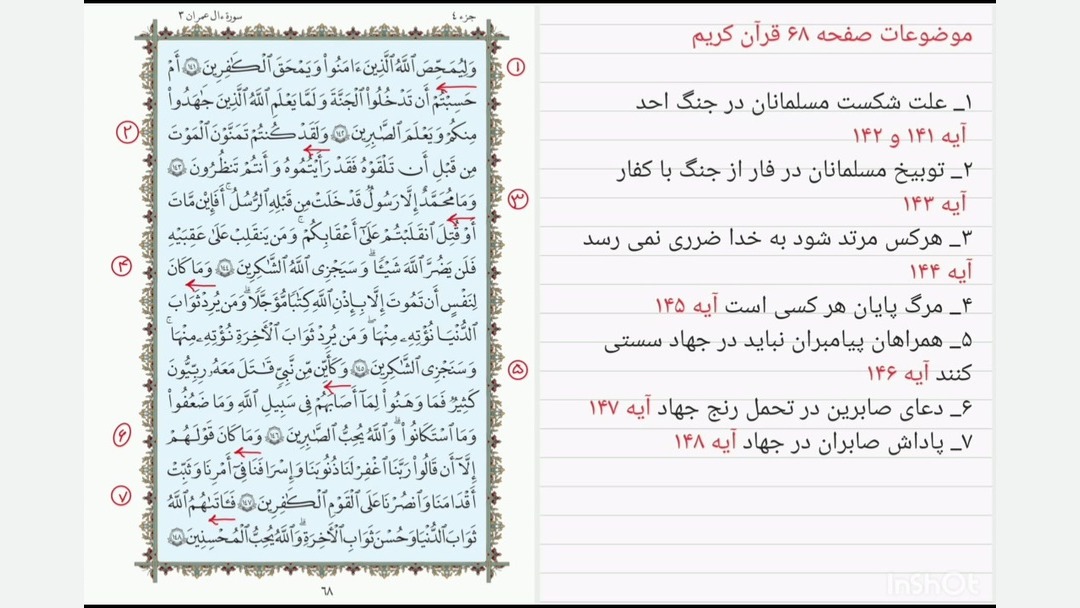 موضوعات صفحه ۶۸ قرآن کریم
۱_ علت شکست مسلمانان در جنگ احد
آیه ۱۴۱ و ۱۴۲
۲_ توبیخ مسلمانان در فار از جنگ با کفار
آیه ۱۴۳
۳_ هرکس مرتد شود به خدا ضرری نمی رسد
آیه ۱۴۴
۴_ مرگ پایان هر کسی است آیه ۱۴۵
۵_ همراهان پیامبران نباید در جهاد سستی
کنند آیه ۱۴۶
۶_ دعای صابرین در تحمل رنج جهاد آیه ۱۴۷
۷_ پاداش صابران در جهاد آیه ۱۴۸
InShOt
جزء ٤
سورة ءال عمران ٣
١ وَلِيُمَحِّصَ ٱللَّهُ ٱلَّذِينَ ءَامَنُوا۟ وَيَمْحَقَ ٱلْكَٰفِرِينَ ١٤١ أَمْ
حَسِبْتُمْ أَن تَدْخُلُوا۟ ٱلْجَنَّةَ وَلَمَّا يَعْلَمِ ٱللَّهُ ٱلَّذِينَ جَٰهَدُوا۟
مِنكُمْ وَيَعْلَمَ ٱلصَّٰبِرِينَ ١٤٢ وَلَقَدْ كُنتُمْ تَمَنَّوْنَ ٱلْمَوْتَ ٢
مِن قَبْلِ أَن تَلْقَوْهُ فَقَدْ رَأَيْتُمُوهُ وَأَنتُمْ تَنظُرُونَ ١٤٣
٣ وَمَا مُحَمَّدٌ إِلَّا رَسُولٌ قَدْ خَلَتْ مِن قَبْلِهِ ٱلرُّسُلُ ۚ أَفَإِي۟ن مَّاتَ
أَوْ قُتِلَ ٱنقَلَبْتُمْ عَلَىٰٓ أَعْقَٰبِكُمْ ۚ وَمَن يَنقَلِبْ عَلَىٰ عَقِبَيْهِ
فَلَن يَضُرَّ ٱللَّهَ شَيْـًٔا ۗ وَسَيَجْزِى ٱللَّهُ ٱلشَّٰكِرِينَ ١٤٤ وَمَا كَانَ ۴
لِنَفْسٍ أَن تَمُوتَ إِلَّا بِإِذْنِ ٱللَّهِ كِتَٰبًا مُّؤَجَّلًا ۗ وَمَن يُرِدْ ثَوَابَ
ٱلدُّنْيَا نُؤْتِهِۦ مِنْهَا وَمَن يُرِدْ ثَوَابَ ٱلْـَٔاخِرَةِ نُؤْتِهِۦ مِنْهَا ۚ
۵ وَسَنَجْزِى ٱلشَّٰكِرِينَ ١٤٥ وَكَأَيِّن مِّن نَّبِىٍّ قَٰتَلَ مَعَهُۥ رِبِّيُّونَ
كَثِيرٌ فَمَا وَهَنُوا۟ لِمَآ أَصَابَهُمْ فِى سَبِيلِ ٱللَّهِ وَمَا ضَعُفُوا۟
وَمَا ٱسْتَكَانُوا۟ ۗ وَٱللَّهُ يُحِبُّ ٱلصَّٰبِرِينَ ١٤٦ وَمَا كَانَ قَوْلَهُمْ ۶
إِلَّآ أَن قَالُوا۟ رَبَّنَا ٱغْفِرْ لَنَا ذُنُوبَنَا وَإِسْرَافَنَا فِىٓ أَمْرِنَا وَثَبِّتْ
أَقْدَامَنَا وَٱنصُرْنَا عَلَى ٱلْقَوْمِ ٱلْكَٰفِرِينَ ١٤٧ فَـَٔاتَىٰهُمُ ٱللَّهُ ٧
ثَوَابَ ٱلدُّنْيَا وَحُسْنَ ثَوَابِ ٱلْـَٔاخِرَةِ ۗ وَٱللَّهُ يُحِبُّ ٱلْمُحْسِنِينَ ١٤٨
٦٨